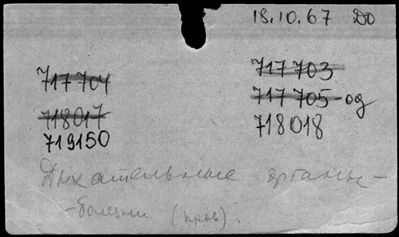 18.10.67 До
717704
717703
718017
717705-од
719150
718018
Дыхательные органы-
-болезни (пров).